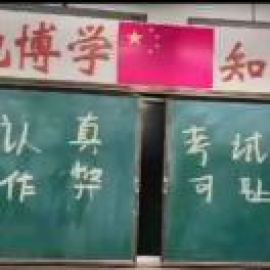 博学 知
认真 考试
作弊 可耻